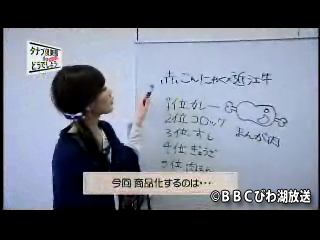 タナゴ倶楽部
どうでしょう
赤こんにゃく×近江牛
1位 カレー
2位 コロッケ
3位 すし
4位 ぎょうざ
5位 肉まん
まんが肉
今回 商品化するのは…
©BBCびわ湖放送